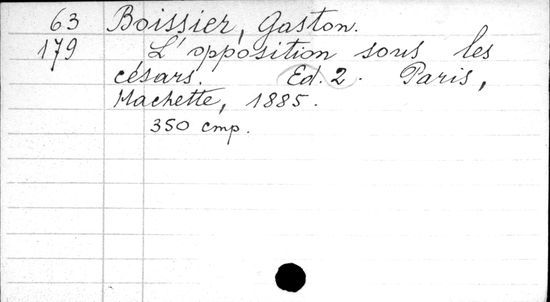 63 Boissier, Gaston.
179 L'opposition sous les
césars. Ed. 2. Paris,
Hachette, 1885.
350 cmp.